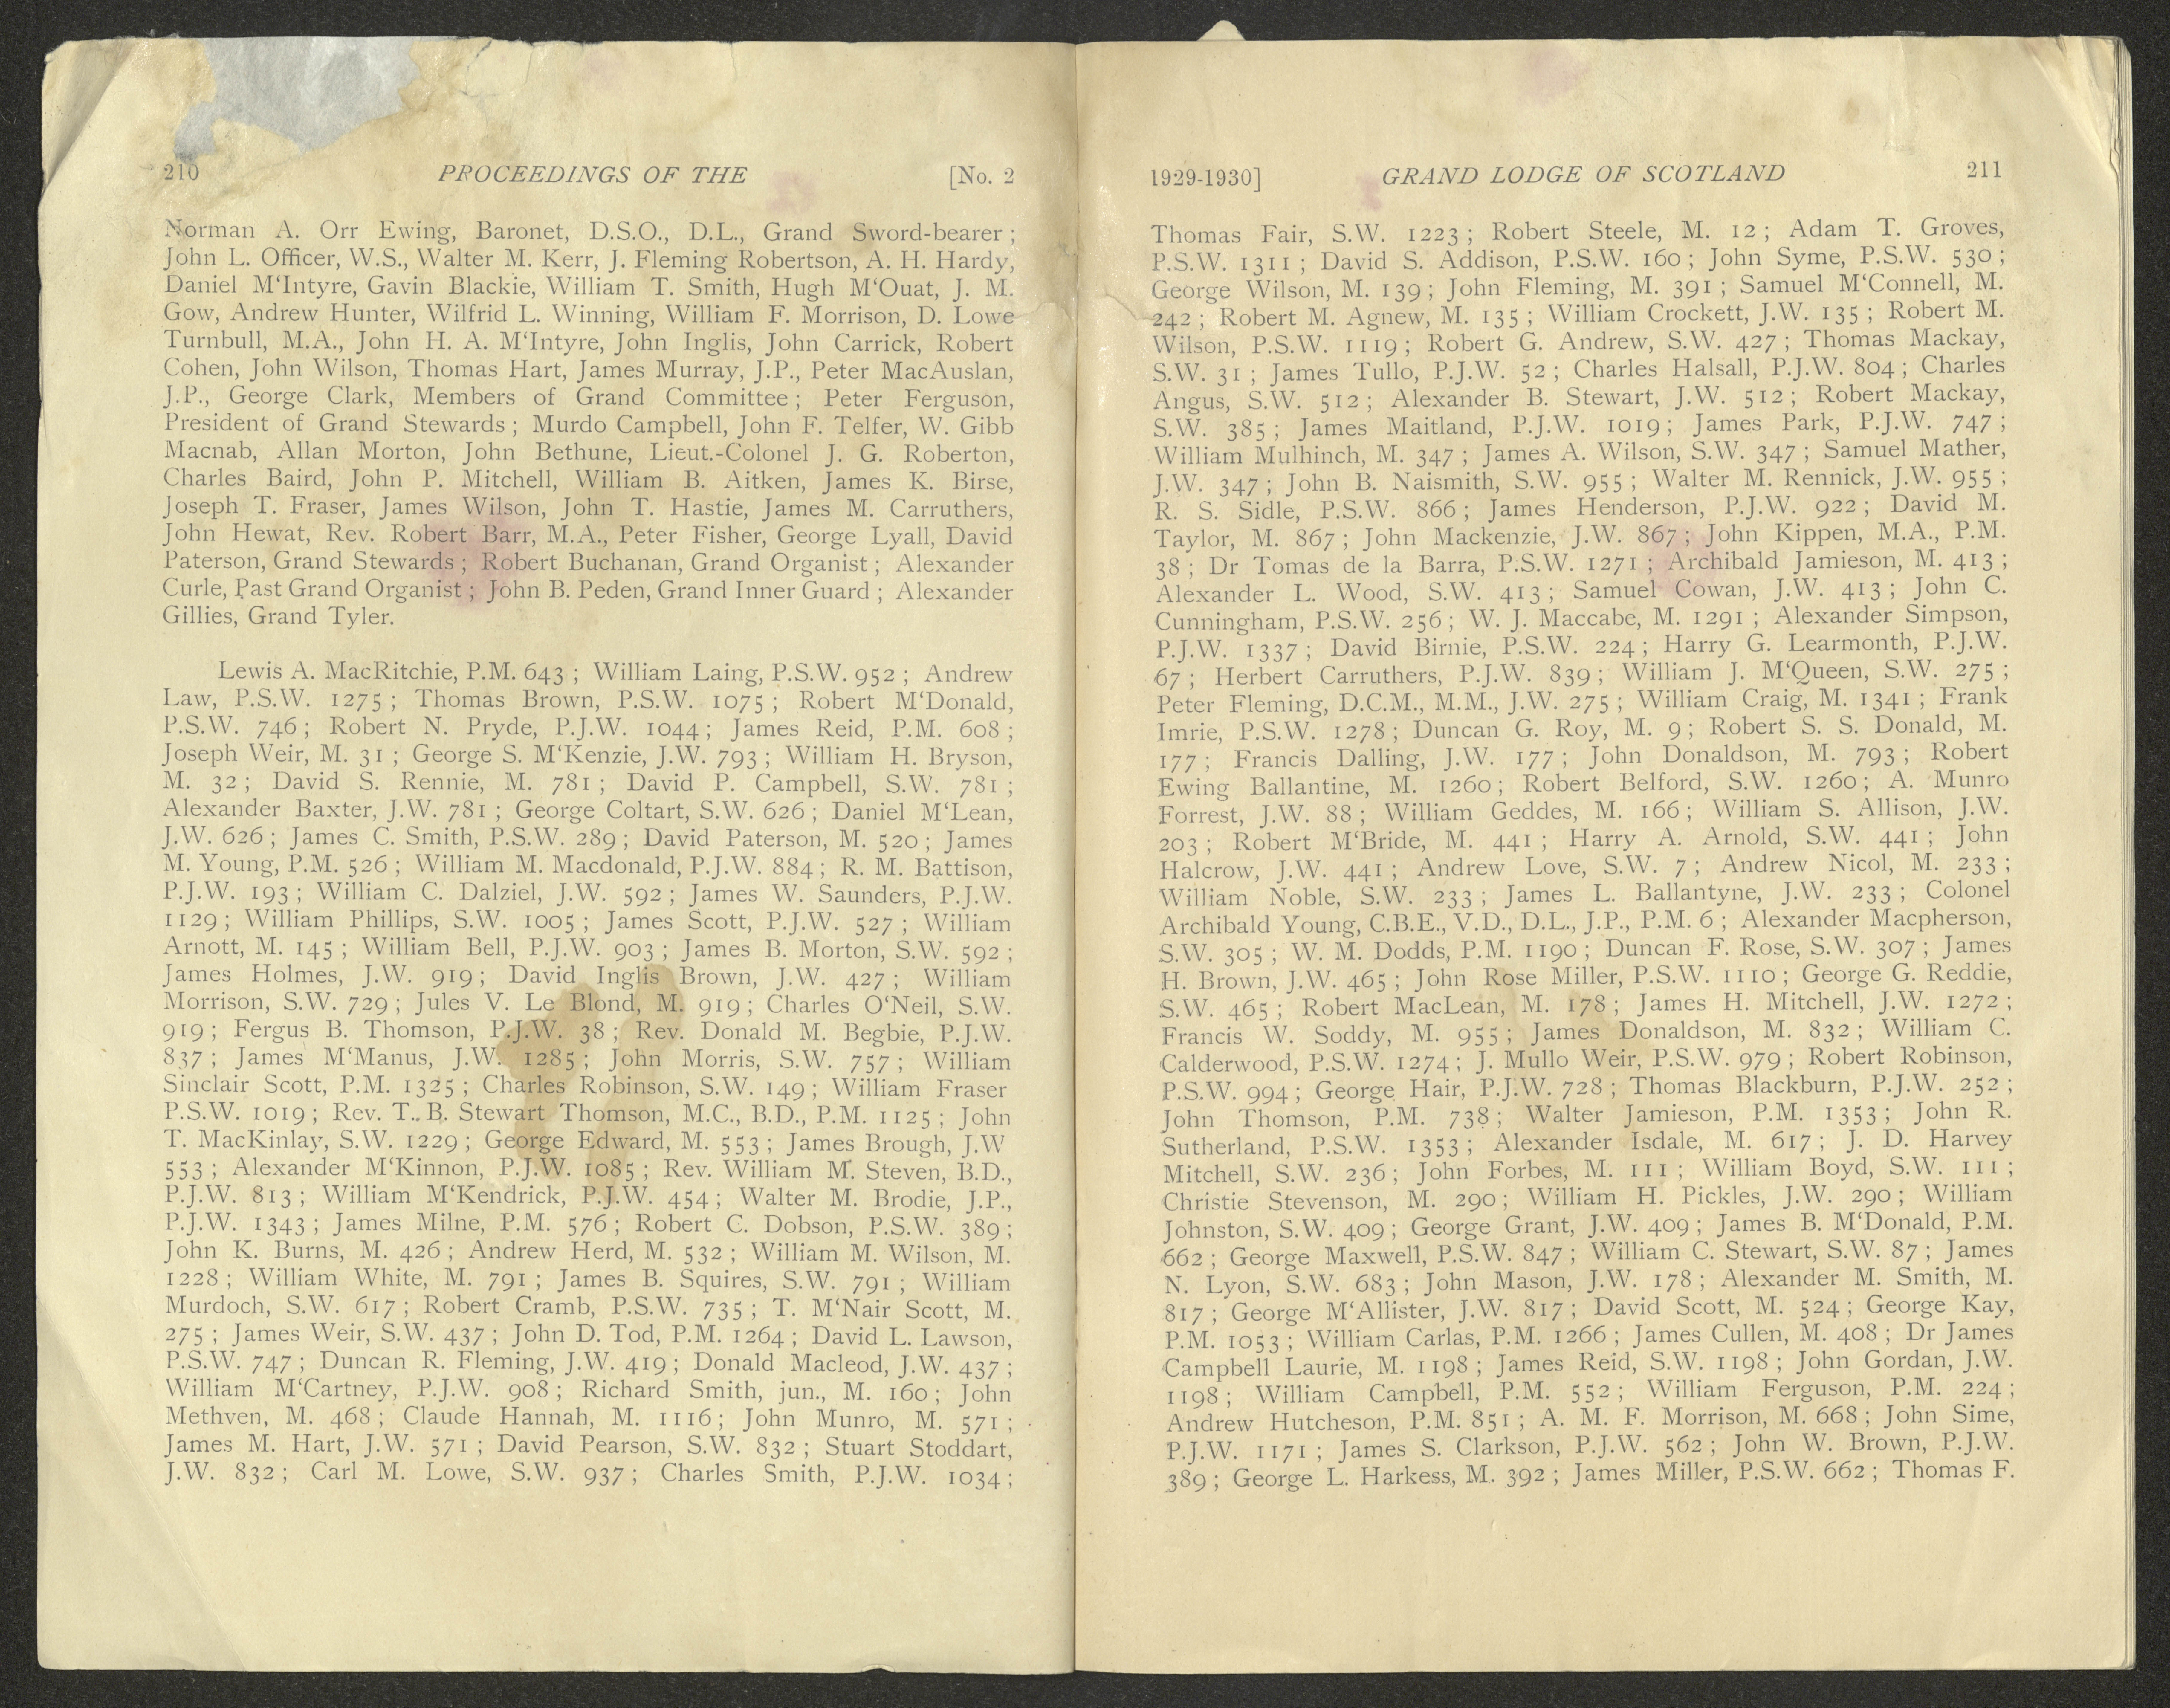 210 PROCEEDINGS OF THE [No. 2
Norman A. Orr Ewing, Baronet, D.S.O., D.L., Grand Sword-bearer ;
John L. Officer, W.S., Walter M. Kerr, J. Fleming Robertson, A. H. Hardy,
Daniel M‘Intyre, Gavin Blackie, William T. Smith, Hugh M‘Ouat, J. M.
Gow, Andrew Hunter, Wilfrid L. Winning, William F. Morrison, D. Lowe
Turnbull, M.A., John H. A. M‘Intyre, John Inglis, John Carrick, Robert
Cohen, John Wilson, Thomas Hart, James Murray, J.P., Peter MacAuslan,
J.P., George Clark, Members of Grand Committee ; Peter Ferguson,
President of Grand Stewards ; Murdo Campbell, John F. Telfer, W. Gibb
Macnab, Allan Morton, John Bethune, Lieut.-Colonel J. G. Roberton,
Charles Baird, John P. Mitchell, William B. Aitken, James K. Birse,
Joseph T. Fraser, James Wilson, John T. Hastie, James M. Carruthers,
John Hewat, Rev. Robert Barr, M.A., Peter Fisher, George Lyall, David
Paterson, Grand Stewards ; Robert Buchanan, Grand Organist ; Alexander
Curle, Past Grand Organist ; John B. Peden, Grand Inner Guard ; Alexander
Gillies, Grand Tyler.
Lewis A. MacRitchie, P.M. 643 ; William Laing, P.S.W. 952 ; Andrew
Law, P.S.W. 1275 ; Thomas Brown, P.S.W. 1075 ; Robert M‘Donald,
P.S.W. 746 ; Robert N. Pryde, P.J.W. 1044 ; James Reid, P.M. 608 ;
Joseph Weir, M. 31 ; George S. M‘Kenzie, J.W. 793 ; William H. Bryson,
M. 32 ; David S. Rennie, M. 781 ; David P. Campbell, S.W. 781 ;
Alexander Baxter, J.W. 781 ; George Coltart, S.W. 626 ; Daniel M‘Lean,
J.W. 626 ; James C. Smith, P.S.W. 289 ; David Paterson, M. 520 ; James
M. Young, P.M. 526 ; William M. Macdonald, P.J.W. 884 ; R. M. Battison,
P.J.W. 193 ; William C. Dalziel, J.W. 592 ; James W. Saunders, P.J.W.
1129 ; William Phillips, S.W. 1005 ; James Scott, P.J.W. 527 ; William
Arnott, M. 145 ; William Bell, P.J.W. 903 ; James B. Morton, S.W. 592 ;
James Holmes, J.W. 919 ; David Inglis Brown, J.W. 427 ; William
Morrison, S.W. 729 ; Jules V. Le Blond, M. 919 ; Charles O‘Neil, S.W.
919 ; Fergus B. Thomson, P.J.W. 38 ; Rev. Donald M. Begbie, P.J.W.
837 ; James M‘Manus, J.W. 1285 ; John Morris, S.W. 757 ; William
Sinclair Scott, P.M. 1325 ; Charles Robinson, S.W. 149 ; William Fraser
P.S.W. 1019 ; Rev. T. B. Stewart Thomson, M.C., B.D., P.M. 1125 ; John
T. MacKinlay, S.W. 1229 ; George Edward, M. 553 ; James Brough, J.W
553 ; Alexander M‘Kinnon, P.J.W. 1085 ; Rev. William M. Steven, B.D.,
P.J.W. 813 ; William M‘Kendrick, P.J.W. 454 ; Walter M. Brodie, J.P.,
P.J.W. 1343 ; James Milne, P.M. 576 ; Robert C. Dobson, P.S.W. 389 ;
John K. Burns, M. 426 ; Andrew Herd, M. 532 ; William M. Wilson, M.
1228 ; William White, M. 791 ; James B. Squires, S.W. 791 ; William
Murdoch, S.W. 617 ; Robert Cramb, P.S.W. 735 ; T. M‘Nair Scott, M.
275 ; James Weir, S.W. 437 ; John D. Tod, P.M. 1264 ; David L. Lawson,
P.S.W. 747 ; Duncan R. Fleming, J.W. 419 ; Donald Macleod, J.W. 437 ;
William M‘Cartney, P.J.W. 908 ; Richard Smith, jun., M. 160 ; John
Methven, M. 468 ; Claude Hannah, M. 1116 ; John Munro, M. 571 ;
James M. Hart, J.W. 571 ; David Pearson, S.W. 832 ; Stuart Stoddart,
J.W. 832 ; Carl M. Lowe, S.W. 937 ; Charles Smith, P.J.W. 1034 ;
1929-1930] GRAND LODGE OF SCOTLAND 211
Thomas Fair, S.W. 1223 ; Robert Steele, M. 12 ; Adam T. Groves,
P.S.W. 1311 ; David S. Addison, P.S.W. 160 ; John Syme, P.S.W. 530 ;
George Wilson, M. 139 ; John Fleming, M. 391 ; Samuel M‘Connell, M.
242 ; Robert M. Agnew, M. 135 ; William Crockett, J.W. 135 ; Robert M.
Wilson, P.S.W. 1119 ; Robert G. Andrew, S.W. 427 ; Thomas Mackay,
S.W. 31 ; James Tullo, P.J.W. 52 ; Charles Halsall, P.J.W. 804 ; Charles
Angus, S.W. 512 ; Alexander B. Stewart, J.W. 512 ; Robert Mackay,
S.W. 385 ; James Maitland, P.J.W. 1019 ; James Park, P.J.W. 747 ;
William Mulhinch, M. 347 ; James A. Wilson, S.W. 347 ; Samuel Mather,
J.W. 347 ; John B. Naismith, S.W. 955 ; Walter M. Rennick, J.W. 955 ;
R. S. Sidle, P.S.W. 866 ; James Henderson, P.J.W. 922 ; David M.
Taylor, M. 867 ; John Mackenzie, J.W. 867 ; John Kippen, M.A., P.M.
38 ; Dr Tomas de la Barra, P.S.W. 1271 ; Archibald Jamieson, M. 413 ;
Alexander L. Wood, S.W. 413 ; Samuel Cowan, J.W. 413 ; John C.
Cunningham, P.S.W. 256 ; W. J. Maccabe, M. 1291 ; Alexander Simpson,
P.J.W. 1337 ; David Birnie, P.S.W. 224 ; Harry G. Learmonth, P.J.W.
67 ; Herbert Carruthers, P.J.W. 839 ; William J. M‘Queen, S.W. 275 ;
Peter Fleming, D.C.M., M.M., J.W. 275 ; William Craig, M. 1341 ; Frank
Imrie, P.S.W. 1278 ; Duncan G. Roy, M. 9 ; Robert S. S. Donald, M.
177 ; Francis Dalling, J.W. 177 ; John Donaldson, M. 793 ; Robert
Ewing Ballantine, M. 1260 ; Robert Belford, S.W. 1260 ; A. Munro
Forrest, J.W. 88 ; William Geddes, M. 166 ; William S. Allison, J.W.
203 ; Robert M‘Bride, M. 441 ; Harry A. Arnold, S.W. 441 ; John
Halcrow, J.W. 441 ; Andrew Love, S.W. 7 ; Andrew Nicol, M. 233 ;
William Noble, S.W. 233 ; James L. Ballantyne, J.W. 233 ; Colonel
Archibald Young, C.B.E., V.D., D.L., J.P., P.M. 6 ; Alexander Macpherson,
S.W. 305 ; W. M. Dodds, P.M. 1190 ; Duncan F. Rose, S.W. 307 ; James
H. Brown, J.W. 465 ; John Rose Miller, P.S.W. 1110 ; George G. Reddie,
S.W. 465 ; Robert MacLean, M. 178 ; James H. Mitchell, J.W. 1272 ;
Francis W. Soddy, M. 955 ; James Donaldson, M. 832 ; William C.
Calderwood, P.S.W. 1274 ; J. Mullo Weir, P.S.W. 979 ; Robert Robinson,
P.S.W. 994 ; George Hair, P.J.W. 728 ; Thomas Blackburn, P.J.W. 252 ;
John Thomson, P.M. 738 ; Walter Jamieson, P.M. 1353 ; John R.
Sutherland, P.S.W. 1353 ; Alexander Isdale, M. 617 ; J. D. Harvey
Mitchell, S.W. 236 ; John Forbes, M. 111 ; William Boyd, S.W. 111 ;
Christie Stevenson, M. 290 ; William H. Pickles, J.W. 290 ; William
Johnston, S.W. 409 ; George Grant, J.W. 409 ; James B. M‘Donald, P.M.
662 ; George Maxwell, P.S.W. 847 ; William C. Stewart, S.W. 87 ; James
N. Lyon, S.W. 683 ; John Mason, J.W. 178 ; Alexander M. Smith, M.
817 ; George M‘Allister, J.W. 817 ; David Scott, M. 524 ; George Kay,
P.M. 1053 ; William Carlas, P.M. 1266 ; James Cullen, M. 408 ; Dr James
Campbell Laurie, M. 1198 ; James Reid, S.W. 1198 ; John Gordan, J.W.
1198 ; William Campbell, P.M. 552 ; William Ferguson, P.M. 224 ;
Andrew Hutcheson, P.M. 851 ; A. M. F. Morrison, M. 668 ; John Sime,
P.J.W. 1171 ; James S. Clarkson, P.J.W. 562 ; John W. Brown, P.J.W.
389 ; George L. Harkess, M. 392 ; James Miller, P.S.W. 662 ; Thomas F.